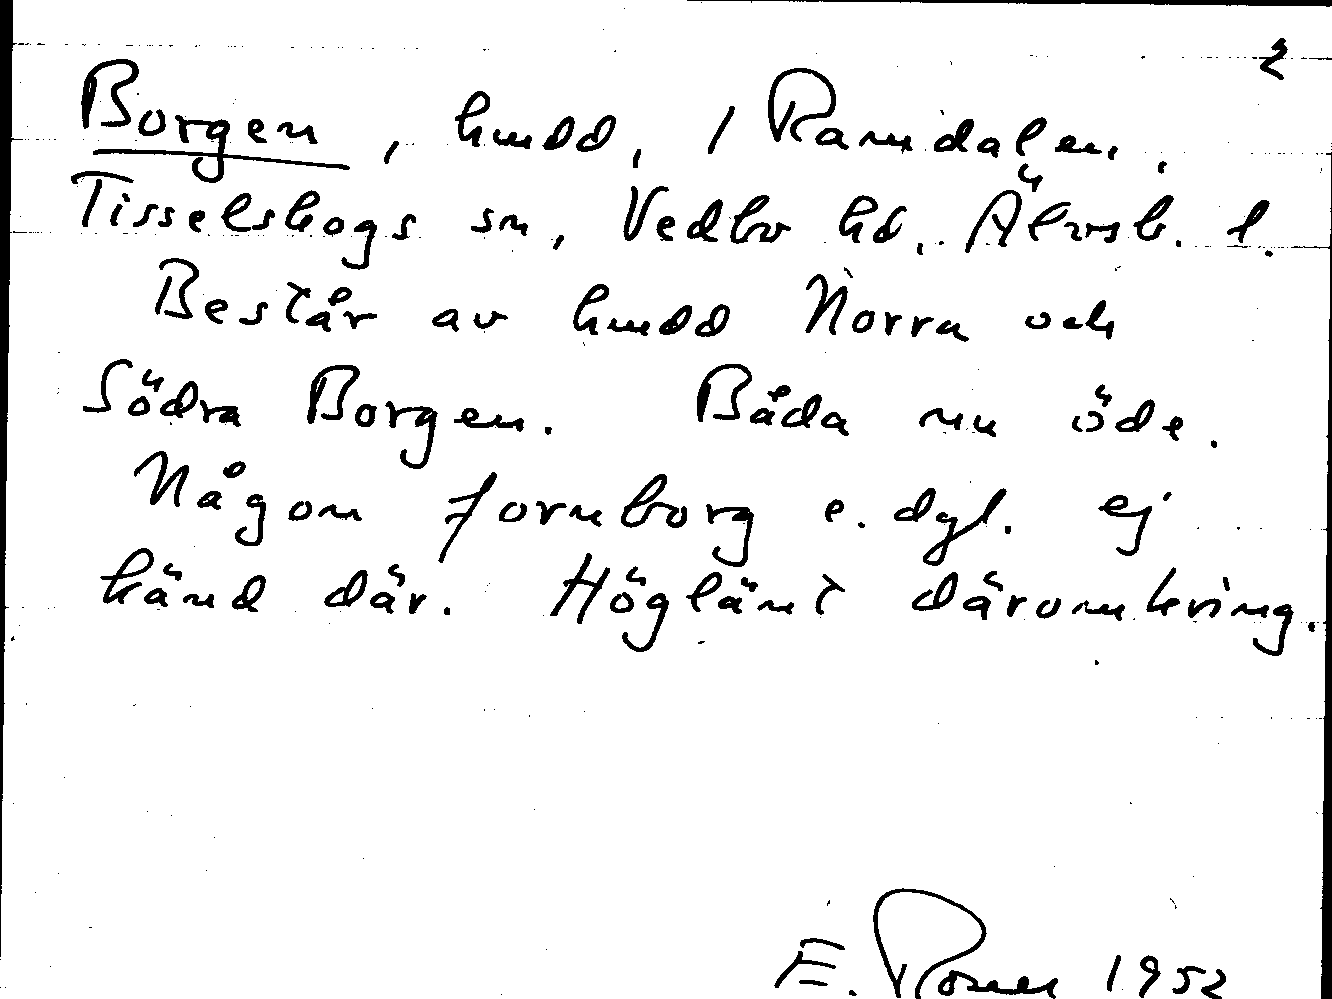 2
Borgen, hmdd, / Ramdalen,
Tisselskogs sn, Vedbo hd, Älvsb. l.
Består av hmdd Norra och
Södra Borgen. Båda nu öde.
Någon fornborg e. dyl. ej
känd där. Höglänt däromkring.
E. 1952